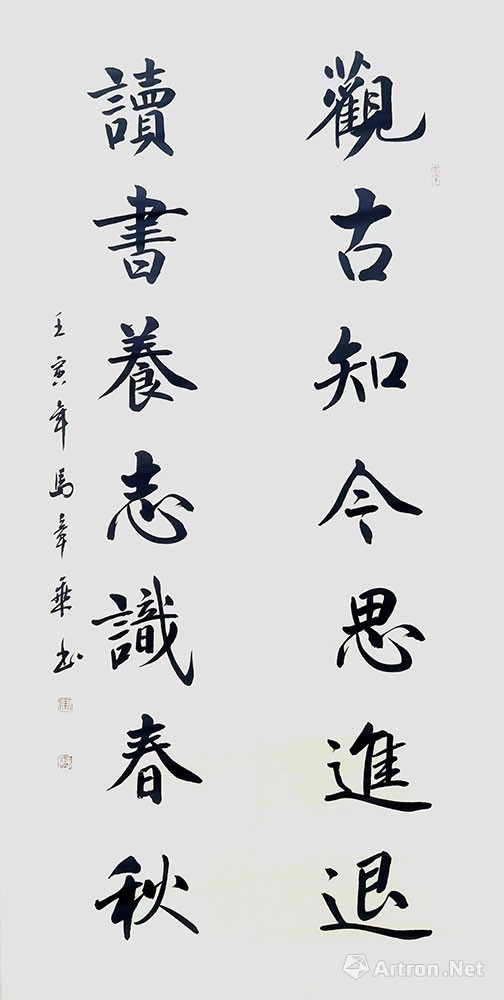 觀古知今思進退
讀書養志識春秋
壬寅年馬章乘书
Artron.Net